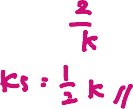 2/k
ks = 1/2 k //